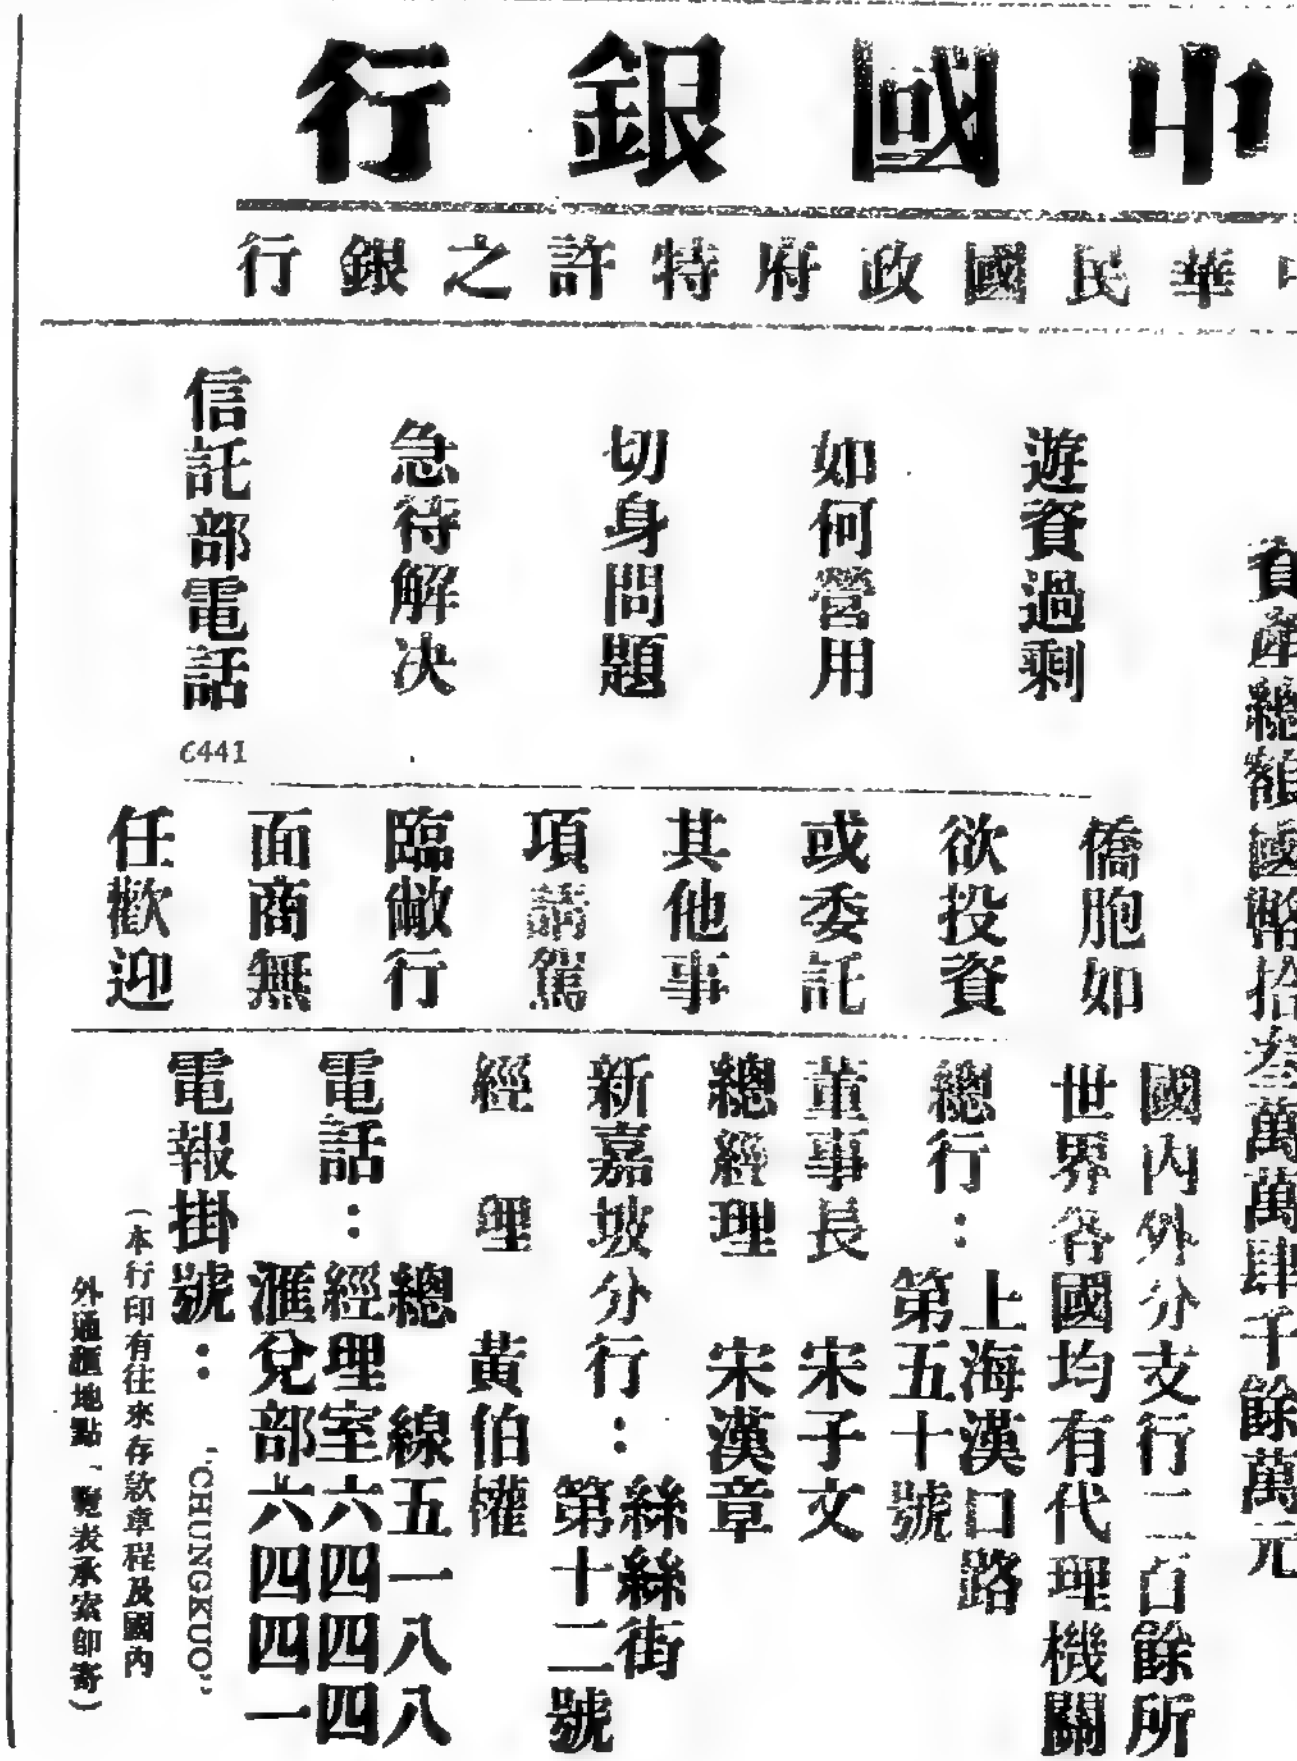 中國銀行
中華民國政府特許之銀行
資產總額國幣拾叁萬萬肆千餘萬元
遊資過剩
如何營用
切身問題
急待解决
信託部電話
6441
僑胞如
欲投資
或委託
其他事
項請駕
臨敝行
面商無
任歡迎
國内外分支行二百餘所
世界各國均有代理機關
總行：上海漢口路
第五十號
董事長 宋子文
總經理 宋漢章
新嘉坡分行：絲絲街
第十二號
經理 黃伯權
電話：總線五一八八
經理室六四四四
滙兌部六四四一
電報掛號："CHUNGKUO"
（本行印有往來存款章程及國内
外通滙地點一覽表承索卽寄）